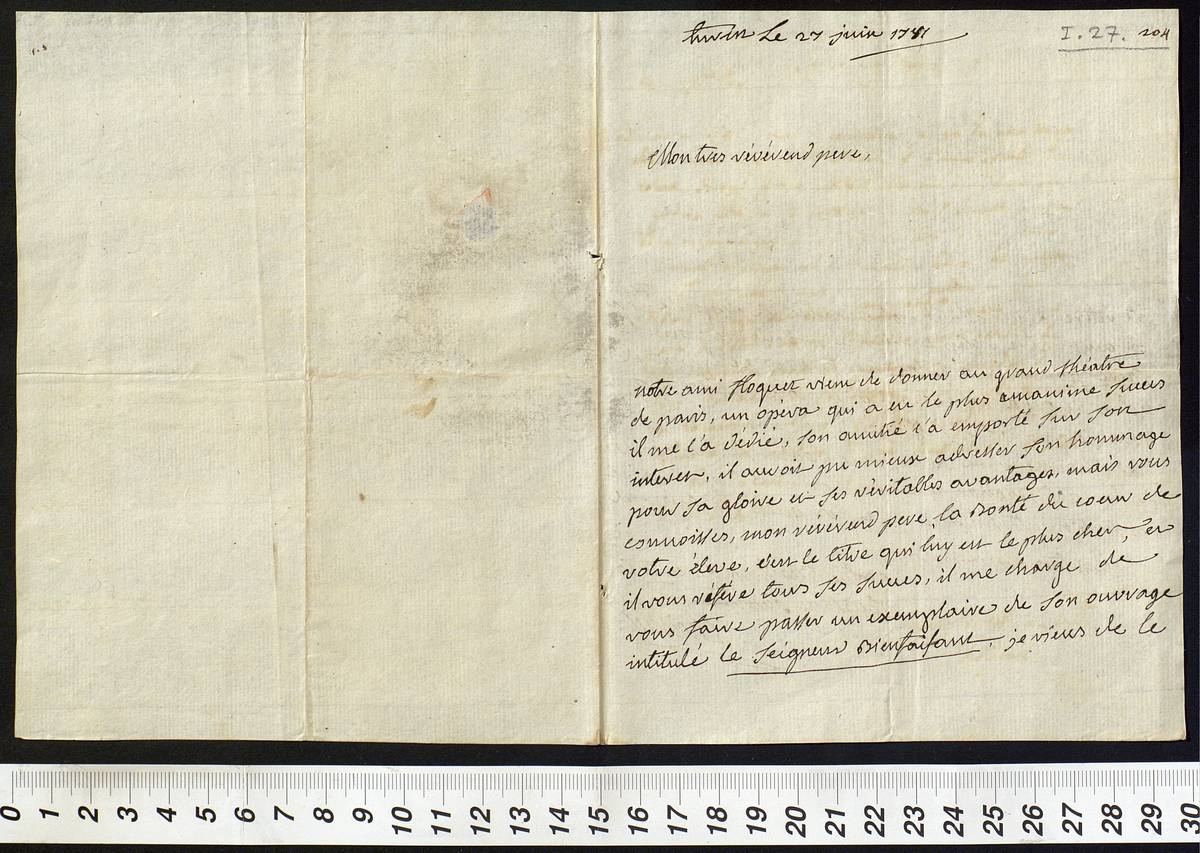 turin Le 27 juin 1781
I. 27. 204
Mon tres révérend pere,
notre ami floquet vient de donner au grand théatre
de paris, un opéra qui a eu le plus unanime succes
il me l'a dédié, son amitié l'a emporté sur son
interest, il auroit pu mieux adresser son hommage
pour sa gloire et ses véritables avantages, mais vous
connoisses, mon révérend pere, la Bonté du coeur de
votre éleve, c'est le titre qui luy est le plus cher, et
il vous réfère tous ses succes, il me charge de
vous faire passer un exemplaire de son ouvrage
intitulé le seigneur Bienfaisant, je viens de le
0 1 2 3 4 5 6 7 8 9 10 11 12 13 14 15 16 17 18 19 20 21 22 23 24 25 26 27 28 29 30